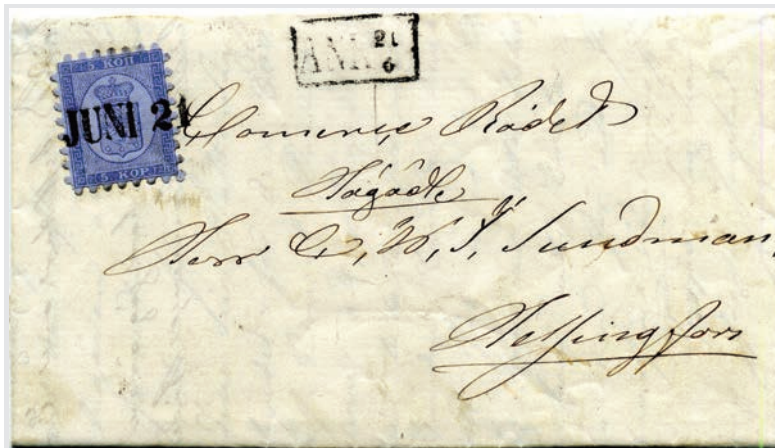 5 KOП
ANK 21
6
JUNI 21
5 KOP
Commerce Rådet
Högädle
Herr C, W, J, Sundman,
Helsingfors